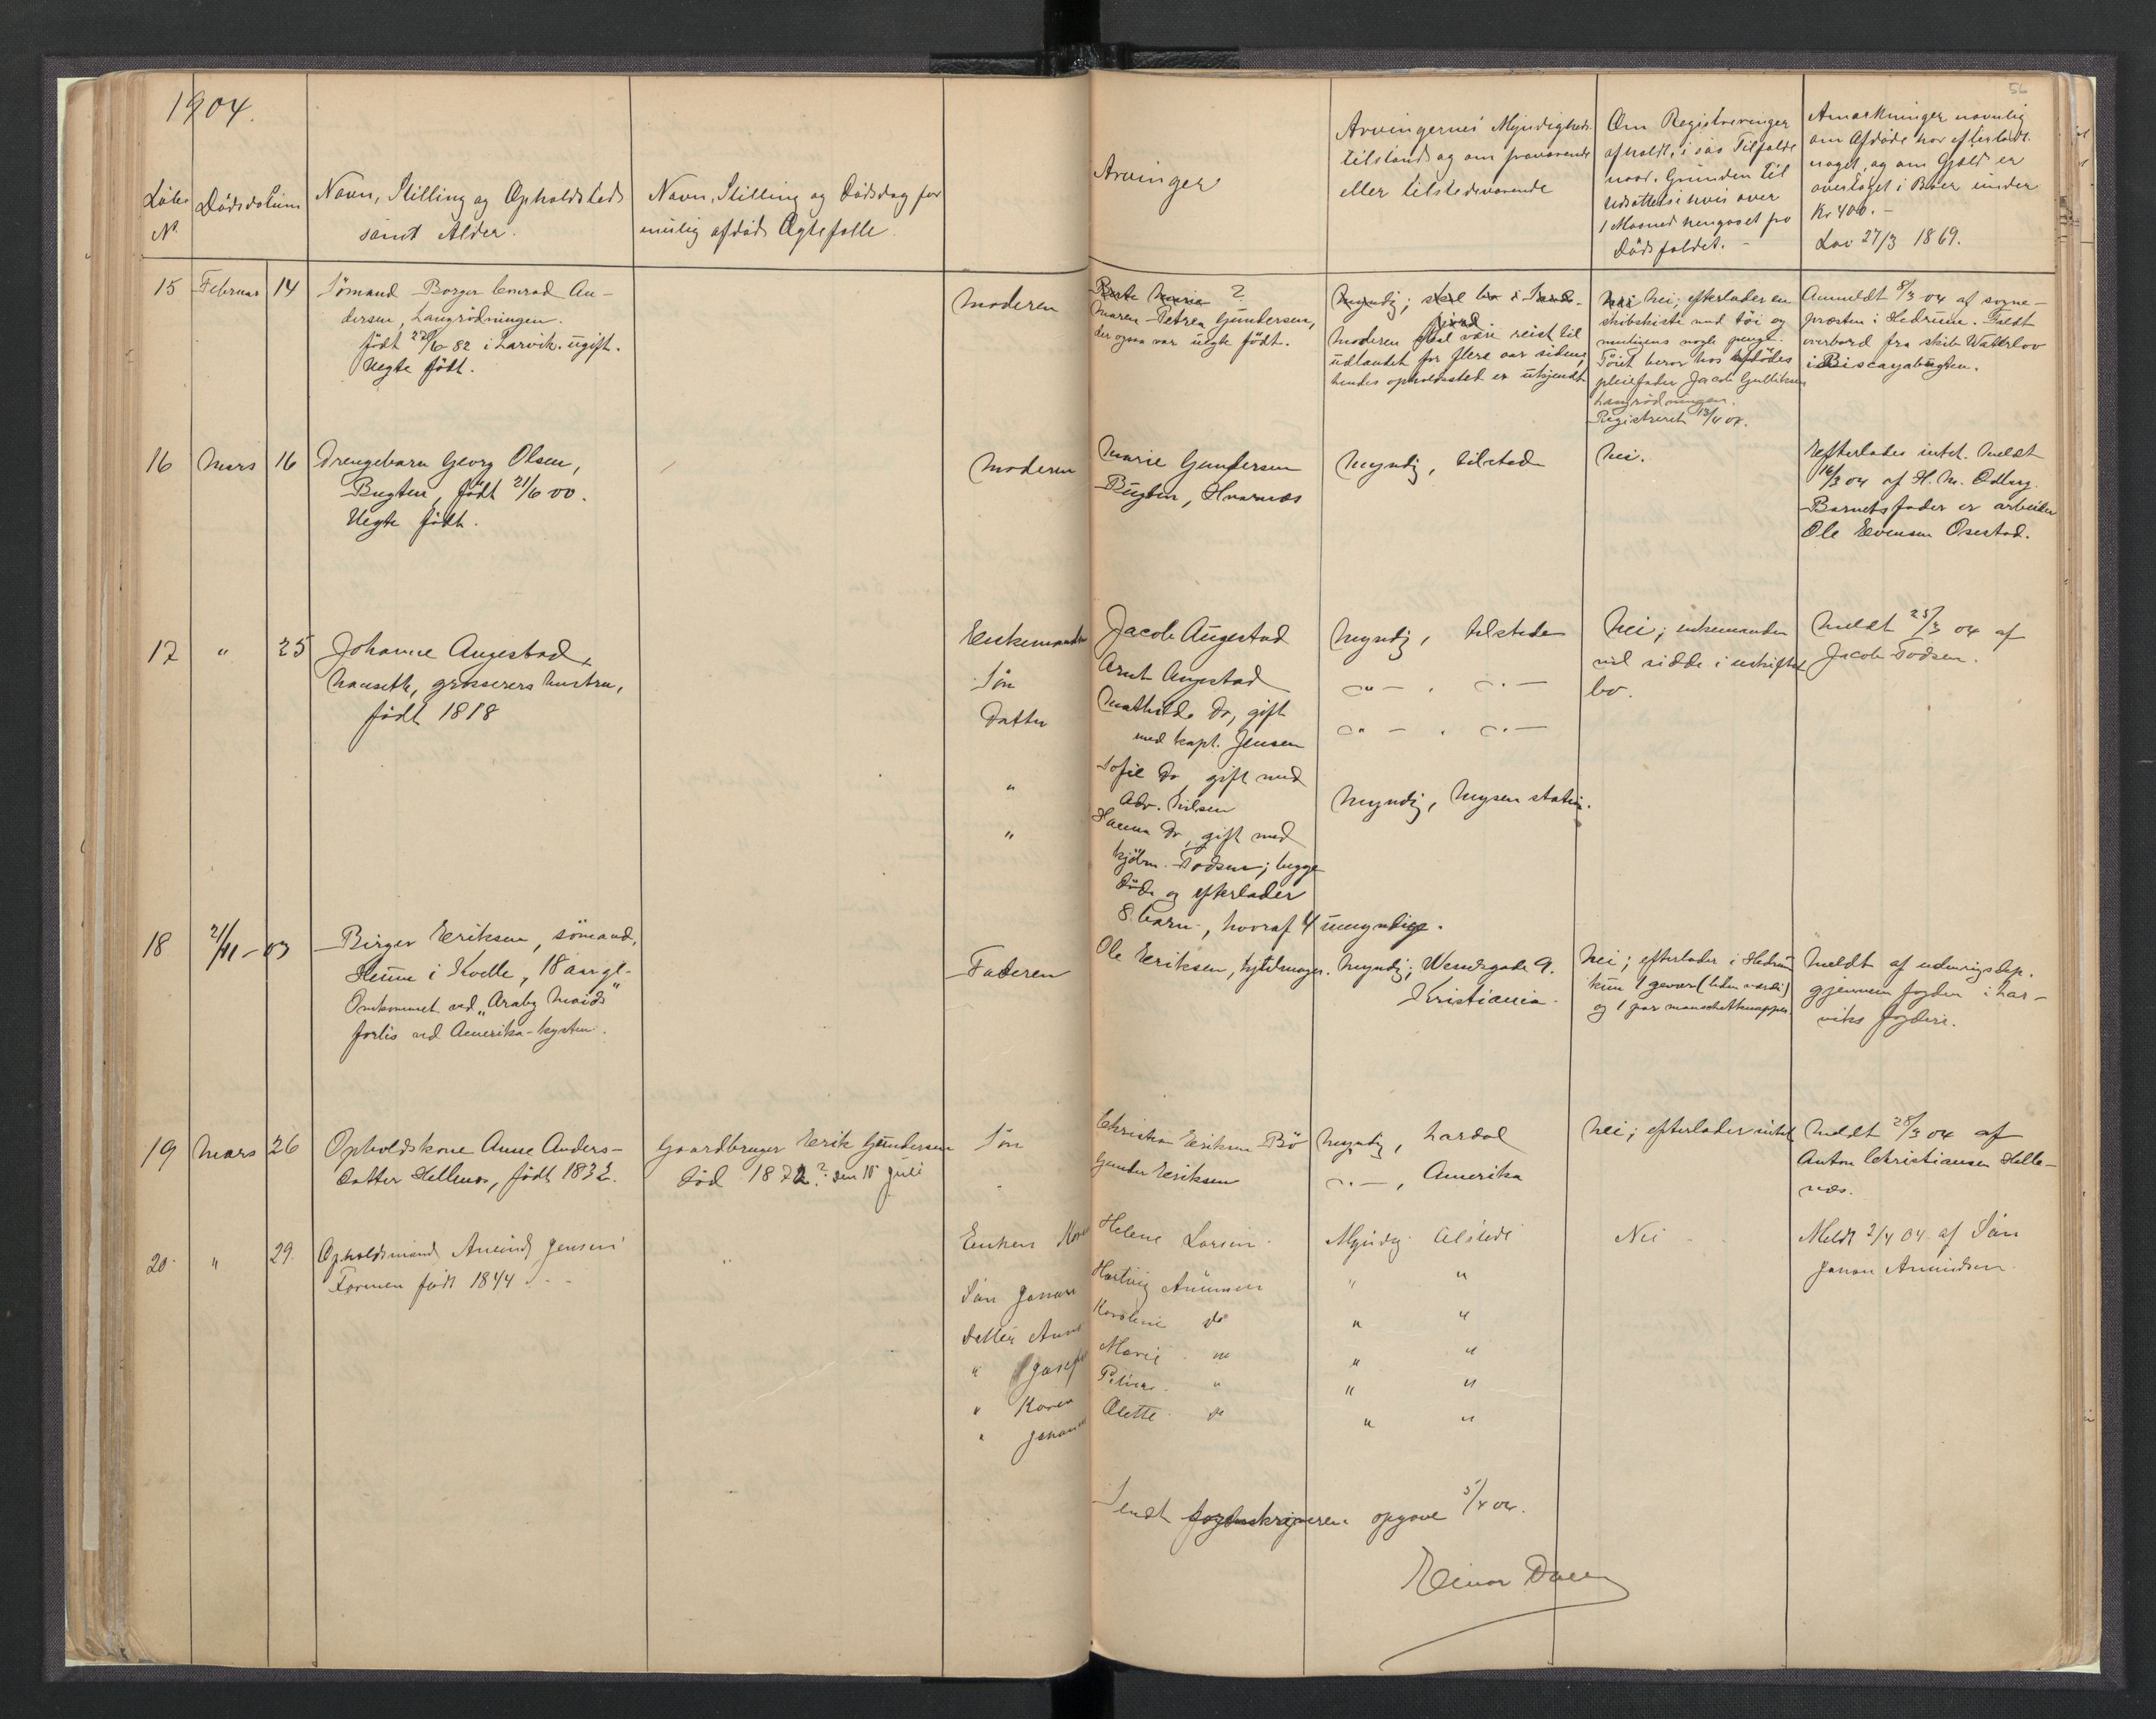 1904.
56
Løbe N.
Dødsdatum
Navn, Stilling og Opholdssted
samt Alder.
Navn, Stilling og Dødsdag for
mulig afdød Ægtefelle.
Arvinger
Arvingernes Myndigheds
tilstand og om fraværende
eller tilstedeværende
Om Registreringer
afholdt, i saa Tilfælde
naar. Grunden til
udsættelse hvis over
1 Maaned hengaaet fra
Dødsfaldet. -
Anmærkninger navnlig
om Afdøde har efterladt
noget, og om Gjæld er
overtaget i Boer under
Kr 400. -
Lov 27/3 1869.
15 Februar 14
Sömand Borger Conrad An-
dersen, Langrödningen.
födt 27/6 82 i Larvik. ugift.
Uegte födt.
Moderen
Berte Marie ?
Maren Petrea Gundersen,
der ogsaa var uegte födt.
Myndig;
Moderen skal være reist til
udlandet for flere aar siden,
hendes opholdssted er ukjendt
Nei; efterlader en
skibskiste med töi og
muligens nogle penge.
Töiet beror hos afdödes
pleiefader Jacob Gulliksen
Langrödningen.
Registreret 13/4 04.
Anmeldt 8/3 04 af sogne-
præsten i Hedrum. Faldt
overbord fra skib Waterlov
i Biscayabugten.
16 Mars 16
Drengebarn Georg Olsen,
Bugten, födt 21/6 00.
Uegte födt.
Moderen
Marie Gundersen
Bugten, Hvarnes
Myndig, tilstede
Nei.
Efterlader intet. Meldt
16/3 04 af H. M. Odberg.
Barnets fader er arbeider
Ole Evensen Osestad.
17 " 25
Johanne Augestad,
Nanseth, grosserers hustru,
födt 1818
Enkemanden
Jacob Augestad
Myndig, tilstede
Nei; enkemanden
vil sidde i uskiftet
bo.
Meldt 25/3 04 af
Jacob Todsen.
Sön
Arnt Augestad
-"- , -"-
Datter
Mathilde Do, gift
med kapt. Jensen
-"- , -"-
"
Sofie Do gift med
Adv. Nilsen
Myndig, Mysen station.
"
Hanna Do, gift med
kjöbm. Todsen; begge
döde og efterlader
8 barn, hvoraf 4 umyndige.
18 21/11-03
Birger Eriksen, sömand,
Heum i Kvelle, 18 aar gl.
Omkommet ved "Araby Maids"
forlis ved Amerika-kysten.
Faderen
Ole Eriksen,
Myndig; Wesselsgade 9.
Kristiania.
Nei; efterlader i Hedrum
kun 1 gevær (liden værdi)
og 1 par manschetknapper
Meldt af udenrigsdep.
gjennem fogden i Lar-
viks fogderi.
19 Mars 26
Opholdskone Anne Anders-
datter Hellenes, födt 1832.
Gaardbruger Erik Gundersen
död 1872? den 10 Juli
Sön
Christian Eriksen Bö
Myndig, Lardal
Nei; efterlader intet
Meldt 28/3 04 af
Anton Christiansen Helle-
næs.
"
Gunder Eriksen
-"-, Amerika
20 " 29.
Opholdsmand Amund Jensen
Farmen født 1844
"
Enken Karen Helene Larsen.
Myndig tilstede
Nei
Meldt 2/4 04 af Søn
Johan Amundsen
Søn Johan Hartvig Amundsen
" "
Datter Anna Karoline do
" "
" Josefine Marie "
" "
" Karen Petrine "
" "
" Johanne Olette do
" "
Sendt sorenskriveren opgave 5/4 04.
Einar Dalen